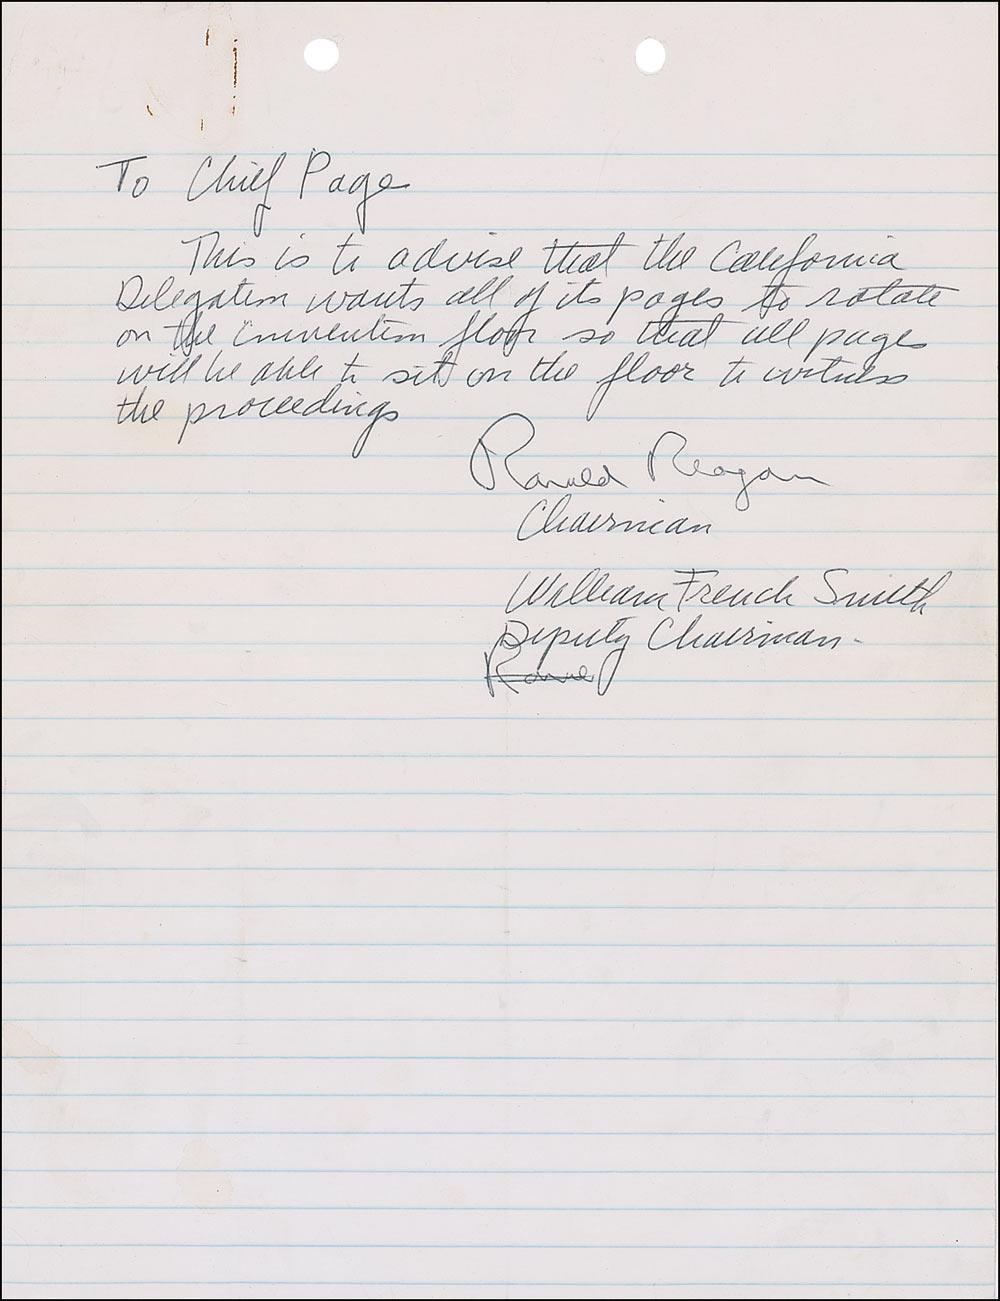 To Chief Page
This is to advise that the California
Delegation wants all of its pages to rotate
on the convention floor so that all pages
will be able to sit on the floor to witness
the proceedings
Ronald Reagan
Chairman
William French Smith
Deputy Chairman-